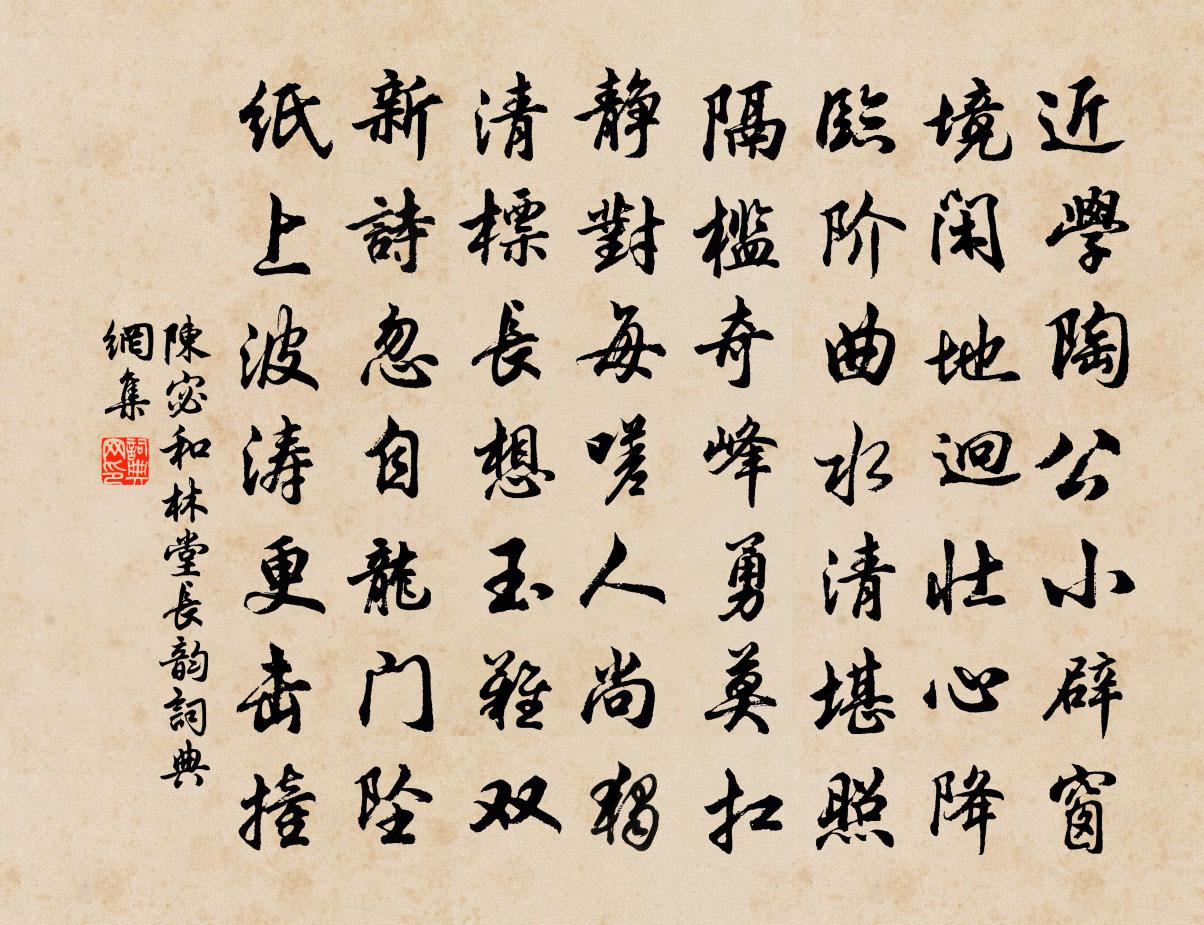 近學陶公小辟窗
境闲地迥壮心降
臨阶曲水清堪照
隔槛奇峰勇莫扛
静對每嗟人尚獨
清標長想玉難双
新詩忽自龍门坠
纸上波涛更击撞
陳宓和林堂長韵詞典
網集
詞典
网印